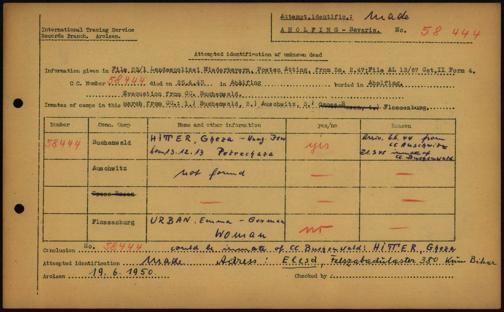 International Tracing Service
Records Branch, Arolsen.
Attempt.identific.: Made
AHOLFING - Bavaria. No. 58 444
Attempted identification of unknown dead
Information given in File 22/1 Landespolizei Niederbayern, Posten Aiting, from
C C Number 58444 died on 25.4.45 in Aholfing buried in Aholfing
Evacuation from CC. Buchenwald
Inmates of camps in this march from CC: 1.) Buchenwald, 2.) Auschwitz, Flossenburg.
Number Conc. Camp Name and other information yes/no Reason
58444 Buchenwald HITTER, Gheza - Hung Jew yes from CC Auschwitz
born 13.12.13 inmate of CC Buchenwald
Auschwitz not found —
Gross Rosen — —
Flossenburg URBAN, Emma - German no —
Woman
Conclusion No. 58444 could be inmate of CC Buchenwald: HITTER, Gheza
Attempted Identification Made Adress: Elesd, 380 Kom Bihar
Arolsen 19.6.1950. Checked by